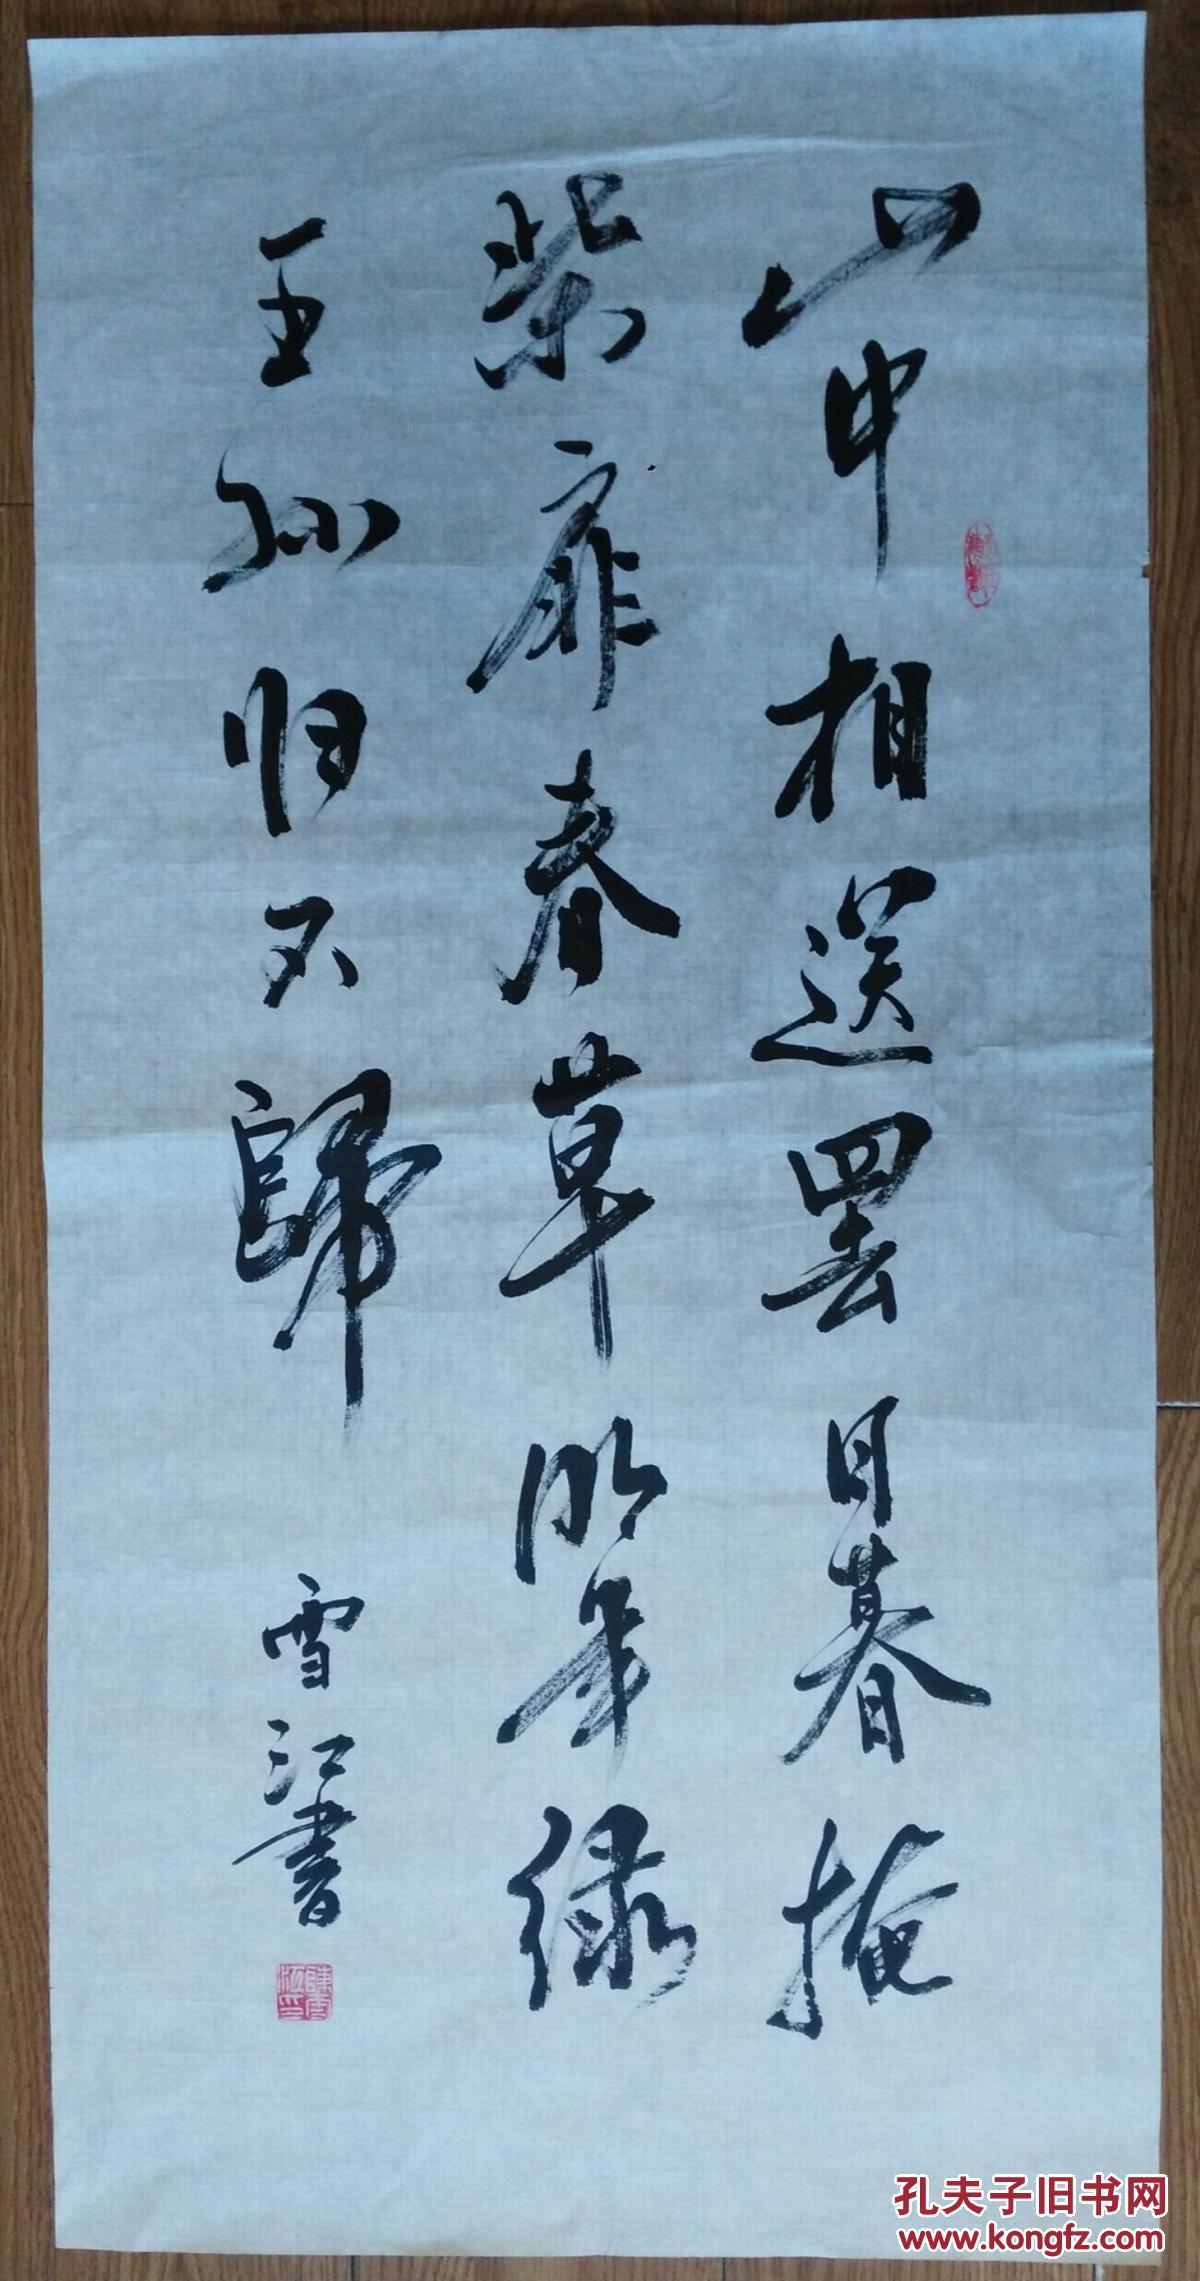 山中相送罢日暮掩
柴扉春草明年绿
王孙归不歸
雪江書
陳雪江印
孔夫子旧书网
www.kongfz.com